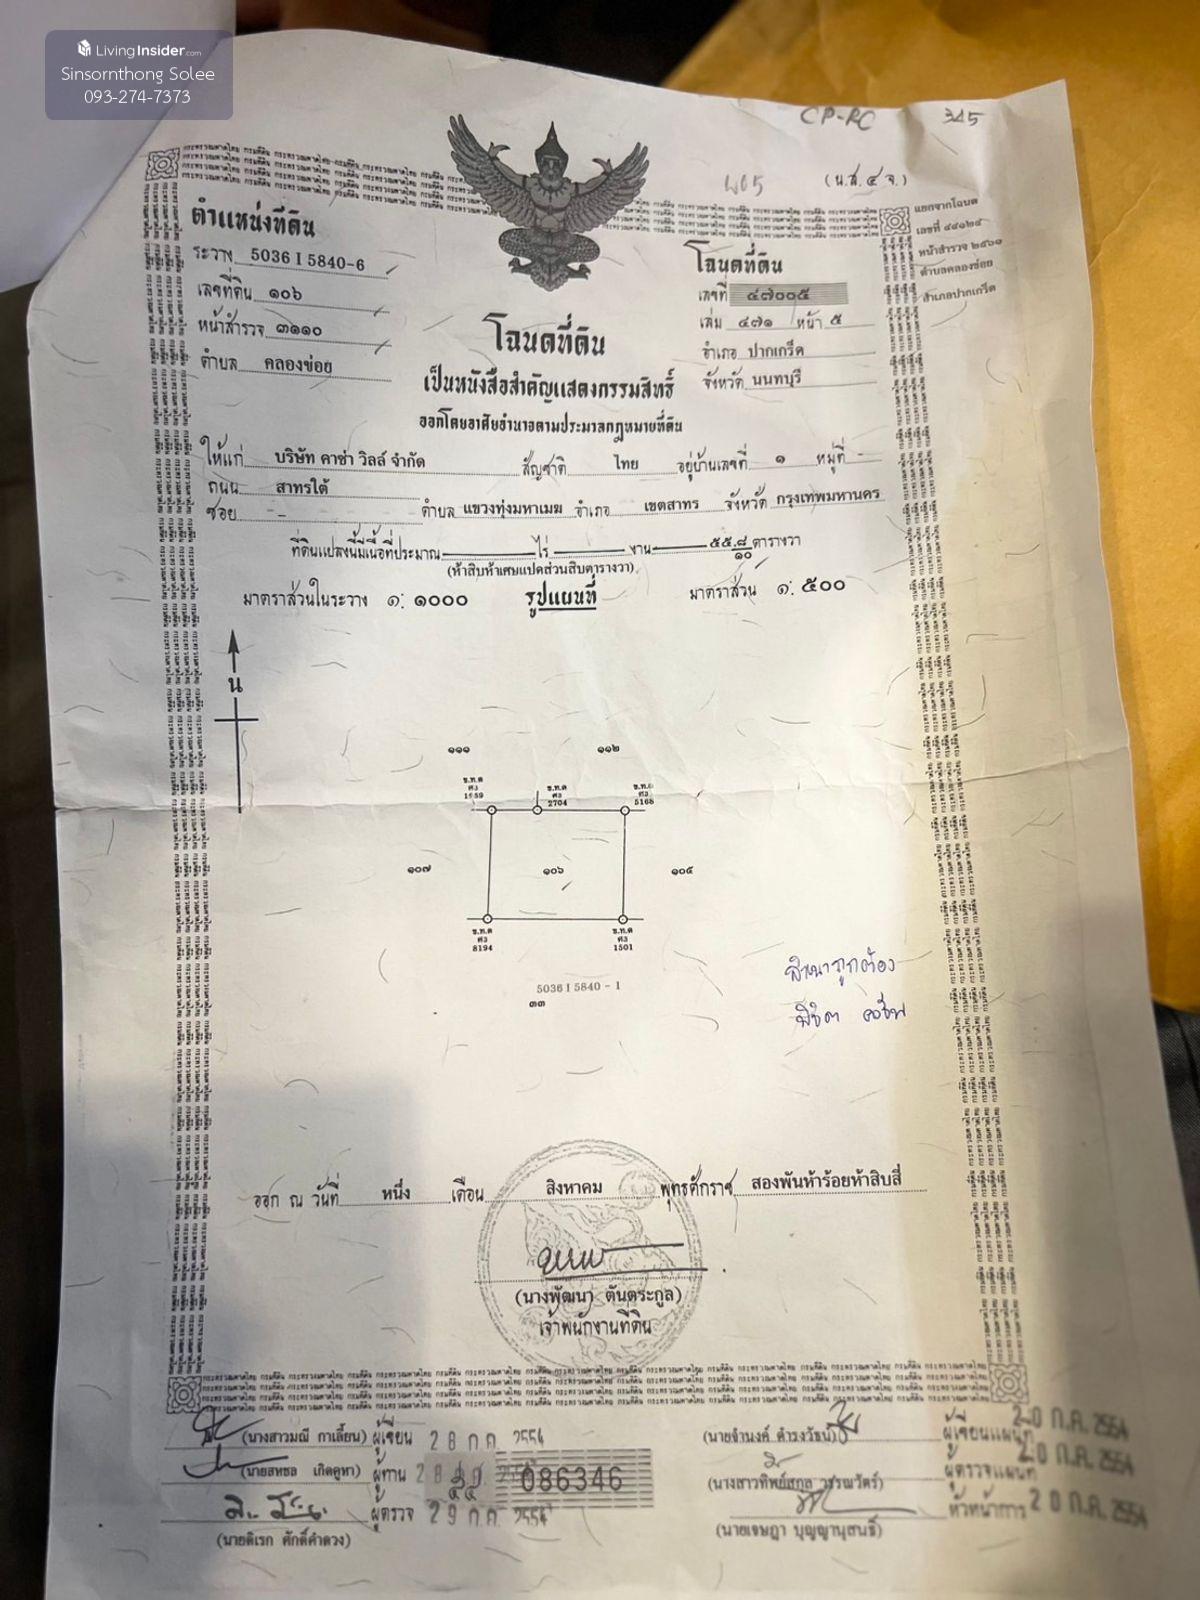 LivingInsider.com
Sinsornthong Solee
093-274-7373
CP-RC 345
(น.ส.๔ จ.)
แยกจากโฉนด
เลขที่ ๔๔๑๒๕
หน้าสำรวจ ๒๕๖๑
ตำบลคลองข่อย
อำเภอปากเกร็ด
ตำแหน่งที่ดิน
ระวาง 5036 I 5840-6
เลขที่ดิน ๑๐๖
หน้าสำรวจ ๓๑๑๐
ตำบล คลองข่อย
โฉนดที่ดิน
เลขที่ ๔๗๐๐๕
เล่ม ๔๗๑ หน้า ๕
อำเภอ ปากเกร็ด
จังหวัด นนทบุรี
โฉนดที่ดิน
เป็นหนังสือสำคัญแสดงกรรมสิทธิ์
ออกโดยอาศัยอำนาจตามประมวลกฎหมายที่ดิน
ให้แก่ บริษัท คาซ่า วิลล์ จำกัด สัญชาติ ไทย อยู่บ้านเลขที่ ๑ หมู่ที่ -
ถนน สาทรใต้
ซอย - ตำบล แขวงทุ่งมหาเมฆ อำเภอ เขตสาทร จังหวัด กรุงเทพมหานคร
ที่ดินแปลงนี้มีเนื้อที่ประมาณ ไร่ งาน ๕๕.๘/๑๐ ตารางวา
(ห้าสิบห้าเศษแปดส่วนสิบตารางวา)
มาตราส่วนในระวาง ๑: ๑๐๐๐ รูปแผนที่ มาตราส่วน ๑: ๕๐๐
น
๑๑๑ ๑๑๒
ข.ท.ด ข.ท.ด
ศ3 ศ3 ศ3
1959 2704 5168
๑๐๗ ๑๐๖ ๑๐๕
ข.ท.ด ข.ท.ด
ศ3 ศ3
8194 1501
5036 I 5840 - 1
๓๓
สำเนาถูกต้อง
ออก ณ วันที่ หนึ่ง เดือน สิงหาคม พุทธศักราช สองพันห้าร้อยห้าสิบสี่
(นางพัฒนา ตันตระกูล)
เจ้าพนักงานที่ดิน
(นางสาวมณี กาเลี้ยน) ผู้เขียน 28 ก.ค. 2554
(นายสหชล เกิดคูหา) ผู้ทาน 28 ก.ค.
086346
ผู้ตรวจ 29 ก.ค. 2554
(นายดิเรก ศักดิ์คำดวง)
(นายจำนงค์ ดำรงวัธน์) ผู้เขียนแผนที่ 20 ก.ค. 2554
(นางสาวทิพย์สกุล วรรณวัตร์) ผู้ตรวจแผนที่ 20 ก.ค. 2554
หัวหน้าการ 20 ก.ค. 2554
(นายเจษฎา บุญญานุสนธิ์)